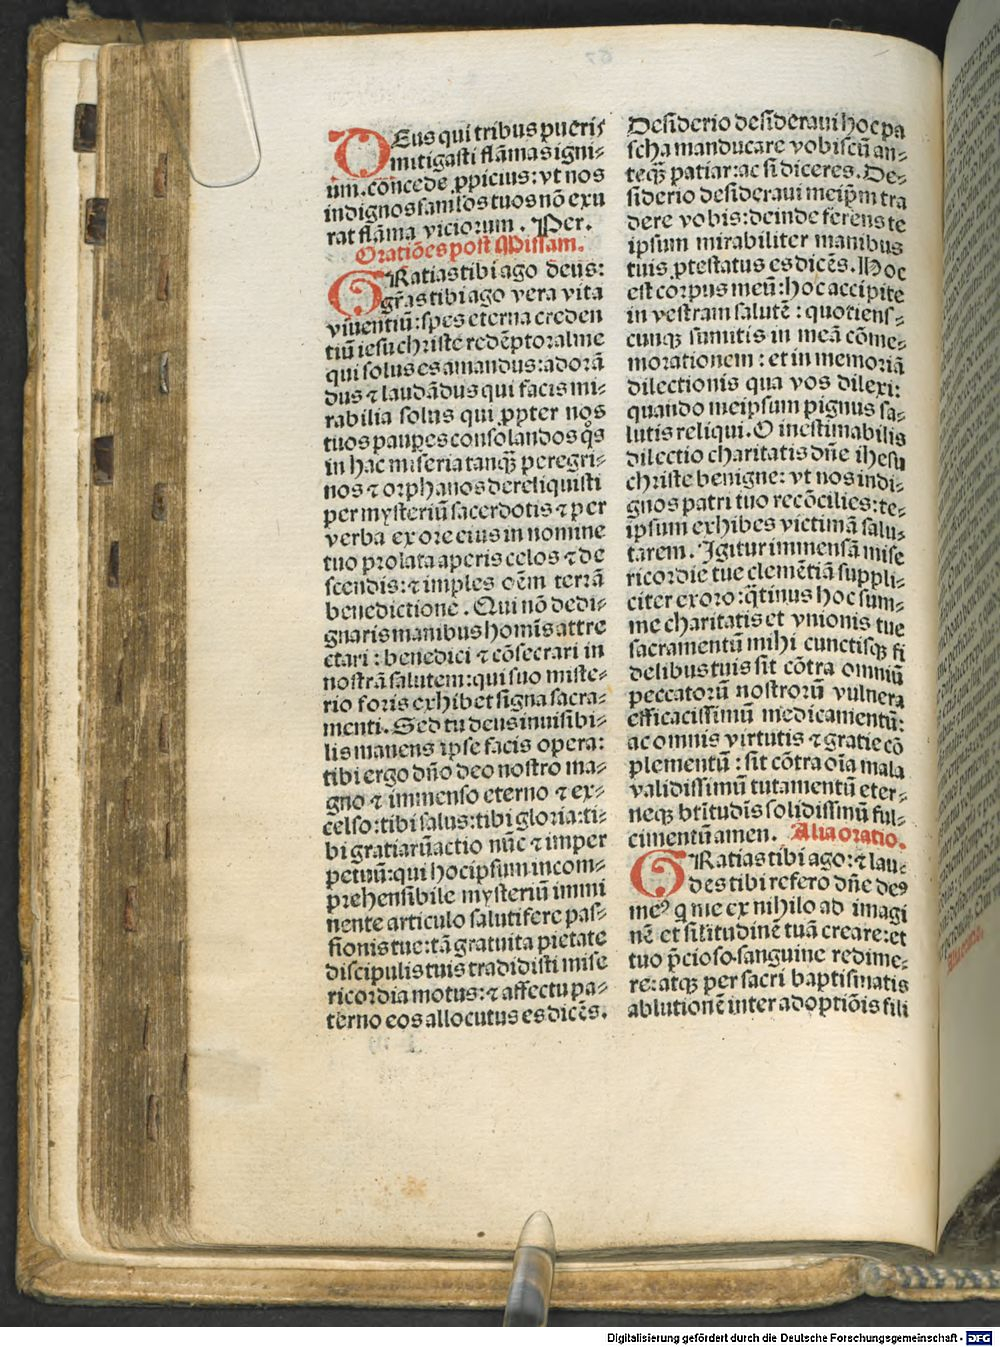 DEus qui tribus pueris
mitigasti flāmas igni⸗
um. concede ꝓpicius: vt nos
indignos famlos tuos nō exu
rat flāma viciorum. Per.
Oratiōes post Missam.
GRatias tibi ago deus:
gr̄as tibi ago vera vita
viuentiū: spes eterna creden
tiū iesu christe redēptor alme
qui solus es amandus: adorā
dus ⁊ laudādus qui facis mi⸗
rabilia solus qui ꝓpter nos
tuos pauꝑes consolandos q̊s
in hac miseria tanqꝫ peregri⸗
nos ⁊ orphanos dereliquisti
per mysteriū sacerdotis ⁊ per
verba ex ore eius in nomine
tuo prolata aperis celos ⁊ de
scendis: ⁊ imples oēm terrā
benedictione. Qui nō dedi⸗
gnaris manibus homīs attre
ctari: benedici ⁊ cōsecrari in
nostrā salutem: qui suo miste⸗
rio foris exhibet signa sacra⸗
menti. Sed tu deus inuisibi⸗
lis manens ipse facis opera:
tibi ergo dño deo nostro ma⸗
gno ⁊ immenso eterno ⁊ ex⸗
celso: tibi salus: tibi gloria: ti⸗
bi gratiarū actio nūc ⁊ imper
petuū: qui hoc ipsum incom⸗
prehensibile mysteriū immi
nente articulo salutifere pas⸗
sionis tue: tā gratuita pietate
discipulis tuis tradidisti mise
ricordia motus: ⁊ affectu pa⸗
terno eos allocutus es dicēs.
Desiderio desideraui hoc pa
scha manducare vobiscū an⸗
teqꝫ patiar: ac si diceres. De⸗
siderio desideraui meip̄m tra
dere vobis: deinde ferens te
ipsum mirabiliter manibus
tuis ꝓtestatus es dicēs. Hoc
est corpus meū: hoc accipite
in vestram salutē: quotiens⸗
cunqꝫ sumitis in meā cōme⸗
morationem: et in memoriā
dilectionis qua vos dilexi:
quando meipsum pignus sa⸗
lutis reliqui. O inestimabilis
dilectio charitatis dn̄e ihesu
christe benigne: vt nos indi⸗
gnos patri tuo recōcilies: te⸗
ipsum exhibes victimā salu⸗
tarem. Igitur immensā mise
ricordie tue clemētiā suppli⸗
citer exoro: q̄tinus hoc sum⸗
me charitatis et vnionis tue
sacramentū mihi cunctisqꝫ fi
delibus tuis sit cōtra omniū
peccatorū nostrorū vulnera
efficacissimū medicamentū:
ac omnis virtutis ⁊ gratie cō
plementū: sit cōtra oīa mala
validissimū tutamentū eter⸗
neqꝫ btītudīs solidissimū ful⸗
cimentū amen. Alia oratio.
GRatias tibi ago: ⁊ lau⸗
des tibi refero dn̄e deꝰ
meꝰ q me ex nihilo ad imagi
nē et silitudinē tuā creare: et
tuo p̄cioso sanguine redime⸗
re: atqꝫ per sacri baptismatis
ablutionē inter adoptiōis fili
Digitalisierung gefördert durch die Deutsche Forschungsgemeinschaft - DFG